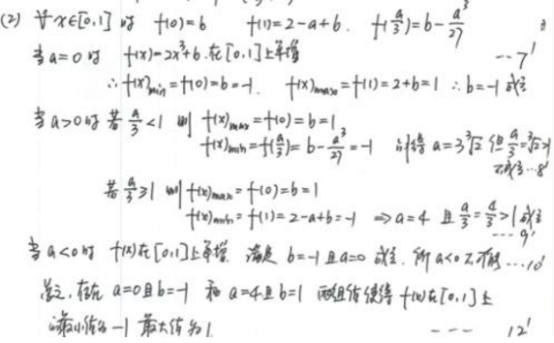 (2) ∀x∈[0,1] 时 f(0)=b f(1)=2-a+b. f(a/3)=b-a³/27
当a=0时 f(x)=2x³+b.在[0,1]上单增 ---7'
∴f(x)min=f(0)=b=-1. f(x)max=f(1)=2+b=1 ∴b=-1 成立
当a>0时 若a/3<1 则 f(x)max=f(0)=b=1
f(x)min=f(a/3)=b-a³/27=-1 解得 a=3³√2 但a/3=³√2>1
不成立…8'
若a/3≥1 则 f(x)max=f(0)=b=1
f(x)min=f(1)=2-a+b=-1 ⇒a=4 且 a/3=4/3>1成立
---9'
当a<0时 f(x)在[0,1]上单增. 满足 b=-1且a=0 成立. 所 a<0不…10'
总之,存在 a=0且b=-1 和 a=4且b=1 两组值使得f(x)在[0,1]上
的最小值为-1 最大值为1. --- 12'